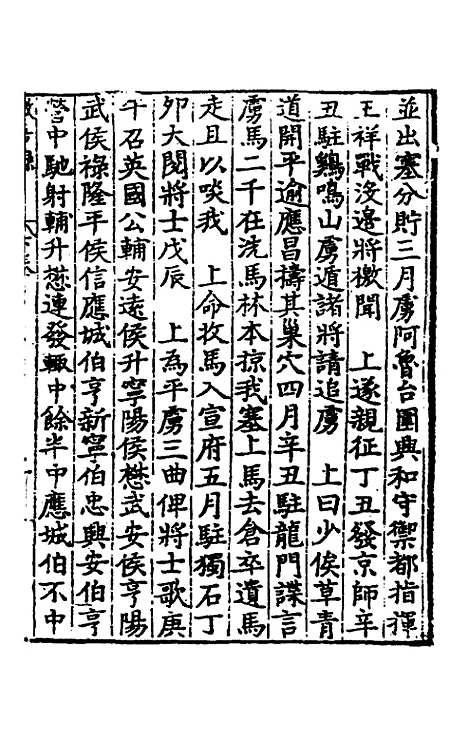 並出塞分貯三月虜阿魯台圍興和守禦都指揮
王祥戰沒邊將檄聞　上遂親征丁丑發京師辛
丑駐鷄鳴山虜遁諸將請追虜　上曰少俟草青
道開平逾應昌擣其巢穴四月辛丑駐龍門諜言
虜馬二千在洗馬林本掠我塞上馬去倉卒遺馬
走且以啖我　上命收馬入宣府五月駐獨石丁
卯大閱將士戊辰　上為平虜三曲俾將士歌庚
午召英國公輔安遠侯升寧陽侯懋武安侯亨陽
武侯祿隆平侯信應城伯亨新寧伯忠興安伯亨
營中馳射輔升懋連發輙中餘半中應城伯不中